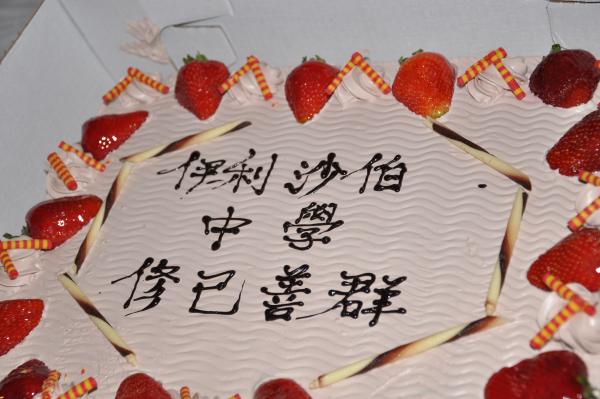 伊利沙伯
中學
修己善群